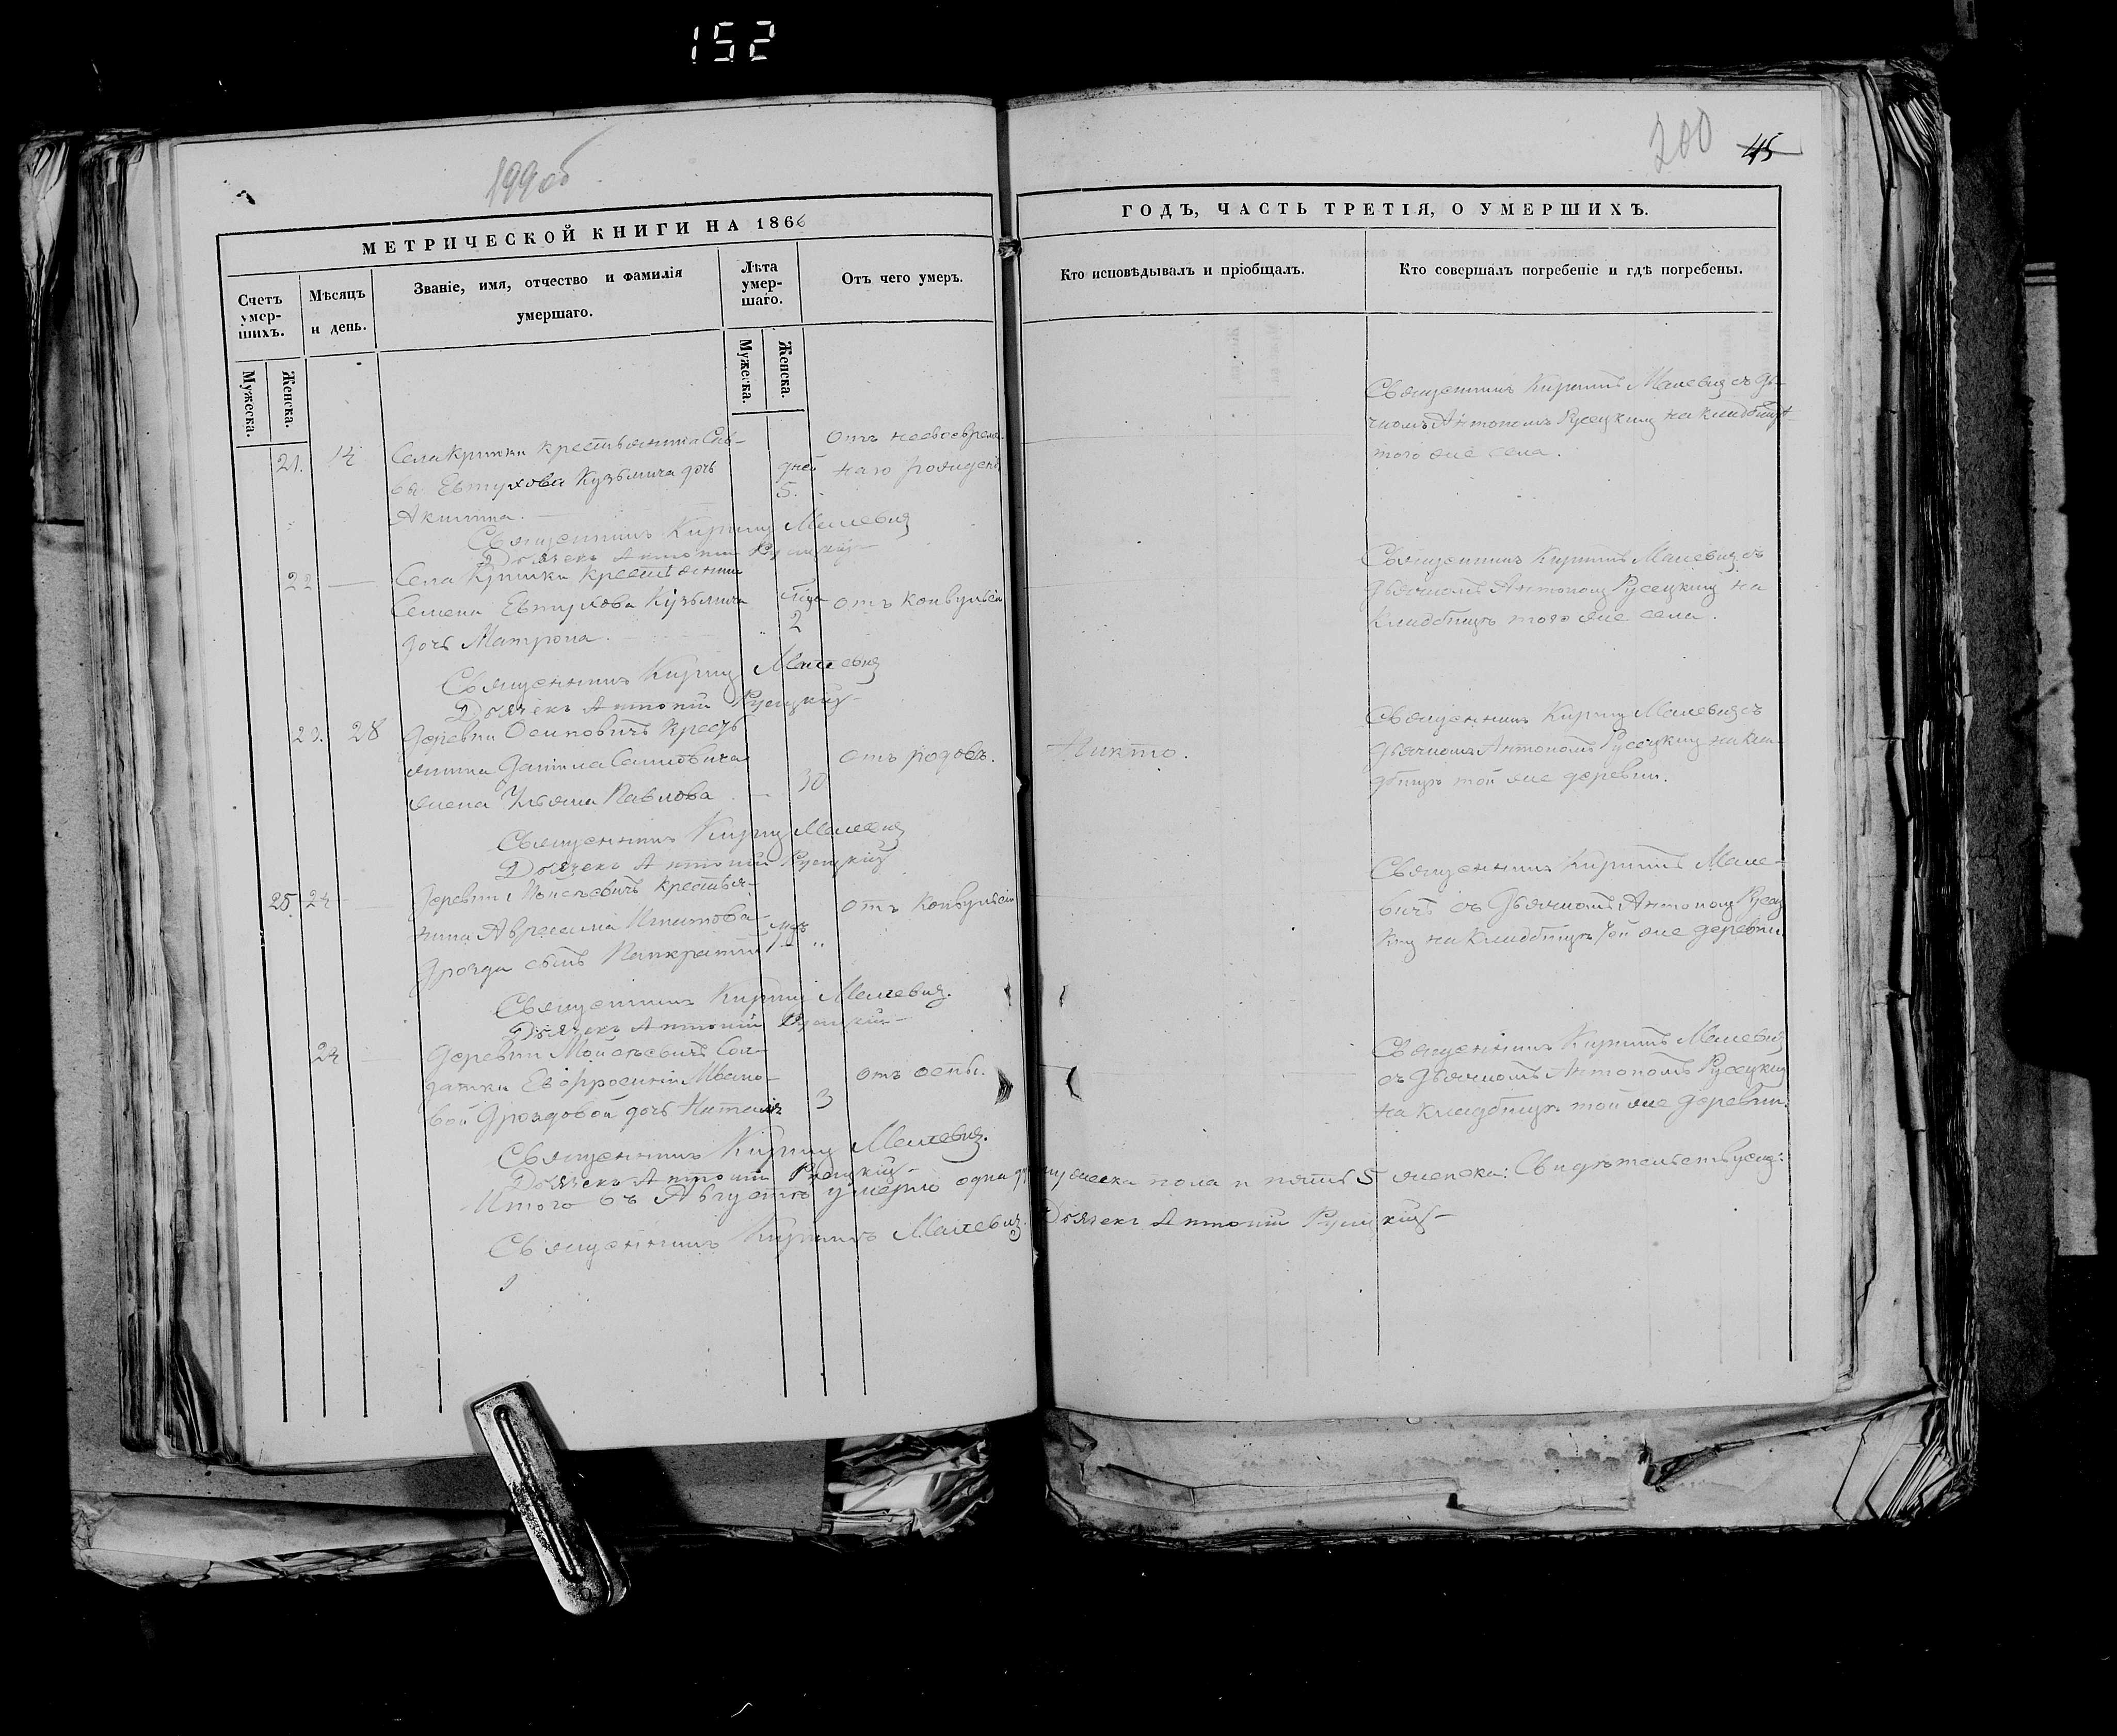 152
199об
200
45
МЕТРИЧЕСКОЙ КНИГИ НА 1866
ГОДЪ, ЧАСТЬ ТРЕТІЯ, О УМЕРШИХЪ.
Счетъ умер-шихъ.
Мужеска.
Женска.
Мѣсяцъ и день.
Званіе, имя, отчество и фамилія умершаго.
Лѣта умер-шаго.
Мужеска.
Женска.
Отъ чего умеръ.
Кто исповѣдывалъ и пріобщалъ.
Кто совершалъ погребеніе и гдѣ погребены.
21. 14 Села Кринки крестьянина Сав-
вы Евтухова Кузьмича дочь
Акилина.
дней
5.
отъ несвоевремен-
наго рожденія
Священникъ Кириллъ Малевичъ съ дья-
чкомъ Антоніемъ Русецкимъ на кладбищѣ
того же села.
Священникъ Кириллъ Малевичъ
Дьячекъ Антоній Русецкій
22 Села Кринки крестьянина
Семена Евтухова Кузьмича
дочь Матрона.
года
2
отъ конвульсіи
Священникъ Кириллъ Малевичъ съ
дьячкомъ Антоніемъ Русецкимъ на
кладбищѣ того же села.
Священникъ Кириллъ Малевичъ
Дьячекъ Антоній Русецкій
23. 28 Деревни Осиповичъ кресть
янина Даніила
жена Ульяна Павлова
30
отъ родовъ.
Никто.
Священникъ Кириллъ Малевичъ съ
дьячкомъ Антоніемъ Русецкимъ на кла-
дбищѣ той же деревни.
Священникъ Кириллъ Малевичъ
Дьячекъ Антоній Русецкій
25. 24 Деревни Моисѣевичъ крестья-
нина
Дрозда сынъ Панкратій
отъ конвульсіи
Священникъ Кириллъ Мале-
вичъ съ дьячкомъ Антоніемъ Русец
кимъ на кладбищѣ той же деревни.
Священникъ Кириллъ Малевичъ.
Дьячекъ Антоній Русецкій
24 Деревни Мойсѣевичъ Сол-
датки Евфросиніи Ивано-
вой Дроздовой дочь Наталія
3
отъ оспы.
Священникъ Кириллъ Малевичъ
съ дьячкомъ Антоніемъ Русецкимъ
на кладбищѣ той же деревни.
Священникъ Кириллъ Малевичъ.
Дьячекъ Антоній Русецкій
Итого въ Августѣ умерло одна мужеска пола и пять 5 женска:
Священникъ Кириллъ Малевичъ. Дьячекъ Антоній Русецкій